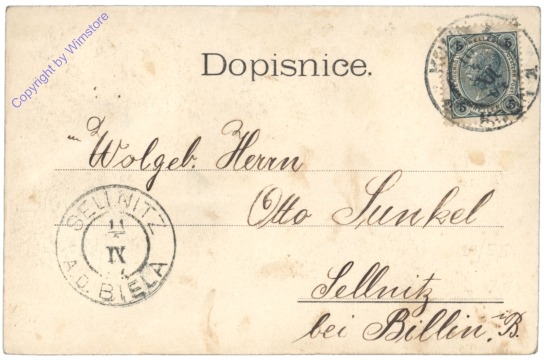 Copyright by Wimstore
Dopisnice.
Wolgeb. Herrn
Otto Sunkel
Sellnitz
bei Billin, i/B.
SELLNITZ
11
IX
A.D. BIELA
5 5
5 5